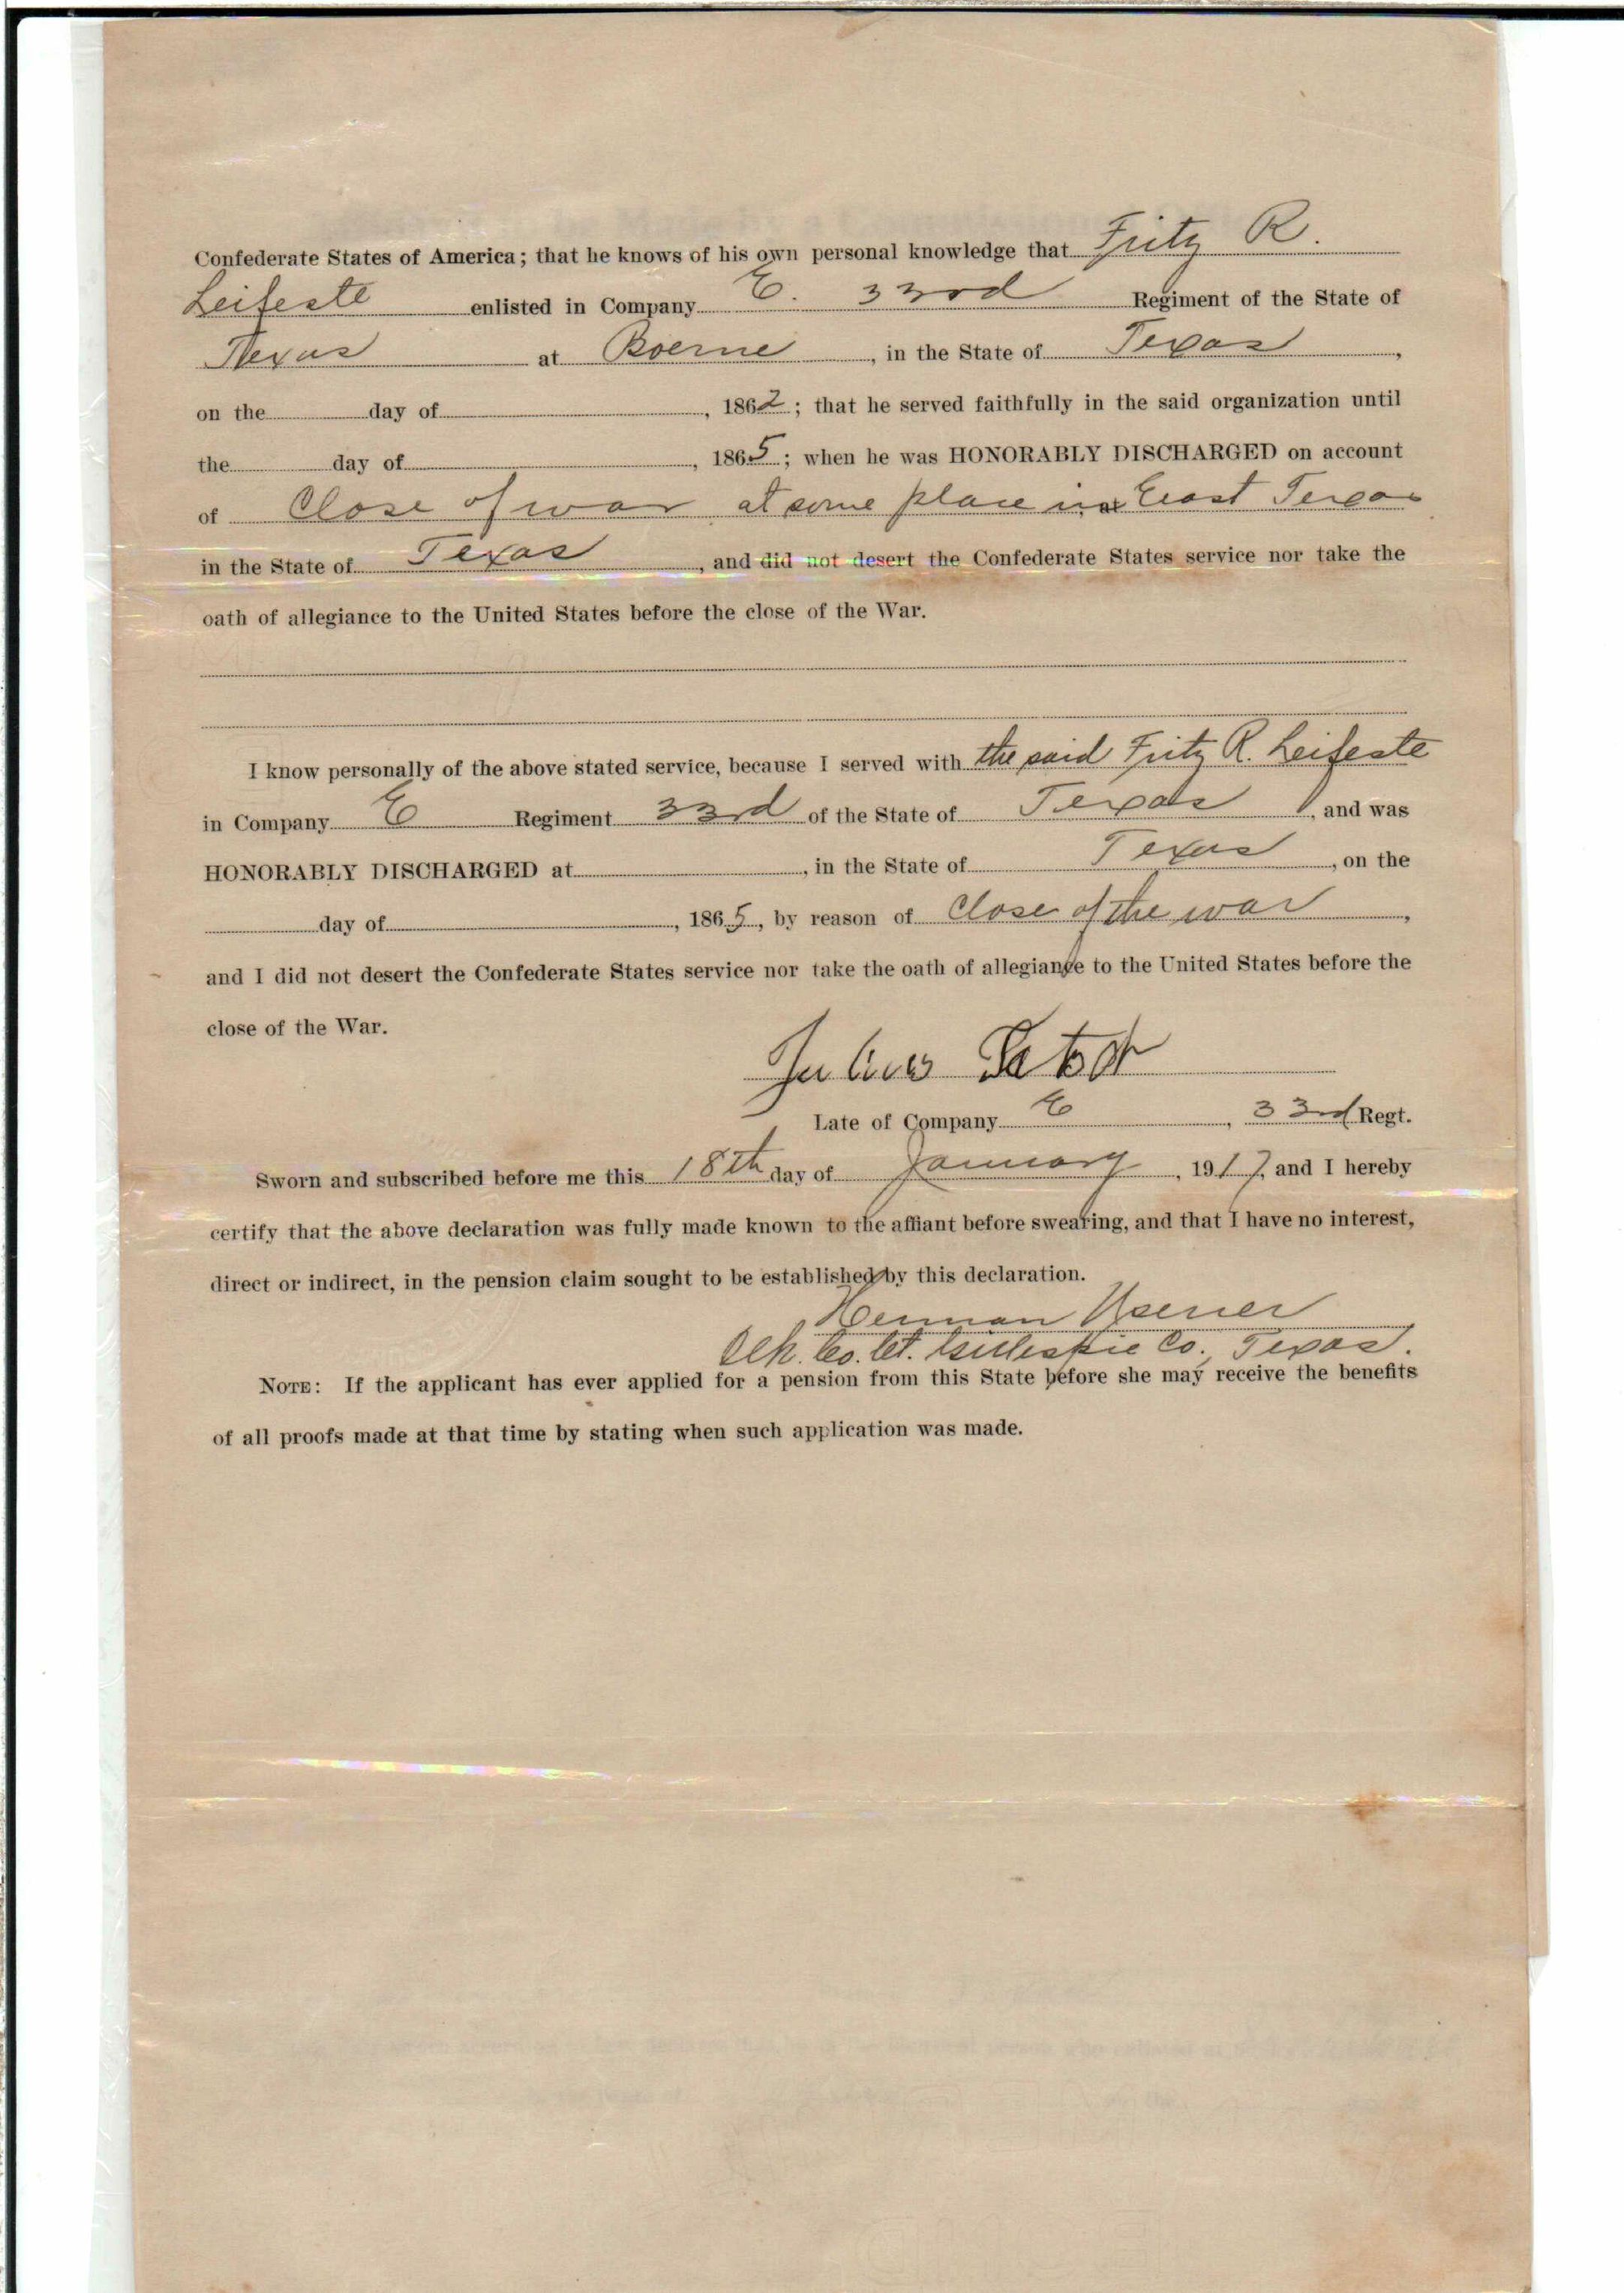 Confederate States of America; that he knows of his own personal knowledge that Fritz R.
Leifeste enlisted in Company E. 33rd Regiment of the State of
Texas at Boerne, in the State of Texas,
on the day of , 1862; that he served faithfully in the said organization until
the day of , 1865; when he was HONORABLY DISCHARGED on account
of Close of war at some place in East Texas
in the State of Texas, and did not desert the Confederate States service nor take the
oath of allegiance to the United States before the close of the War.
I know personally of the above stated service, because I served with the said Fritz R. Leifeste
in Company E Regiment 33rd of the State of Texas, and was
HONORABLY DISCHARGED at , in the State of Texas, on the
day of , 1865, by reason of Close of the war,
and I did not desert the Confederate States service nor take the oath of allegiance to the United States before the
close of the War.
Julius
Late of Company E, 33rd Regt.
Sworn and subscribed before me this 18th day of January, 1917, and I hereby
certify that the above declaration was fully made known to the affiant before swearing, and that I have no interest,
direct or indirect, in the pension claim sought to be established by this declaration.
Herman Usener
Clk. Co. Ct. Gillespie Co., Texas.
NOTE: If the applicant has ever applied for a pension from this State before she may receive the benefits
of all proofs made at that time by stating when such application was made.